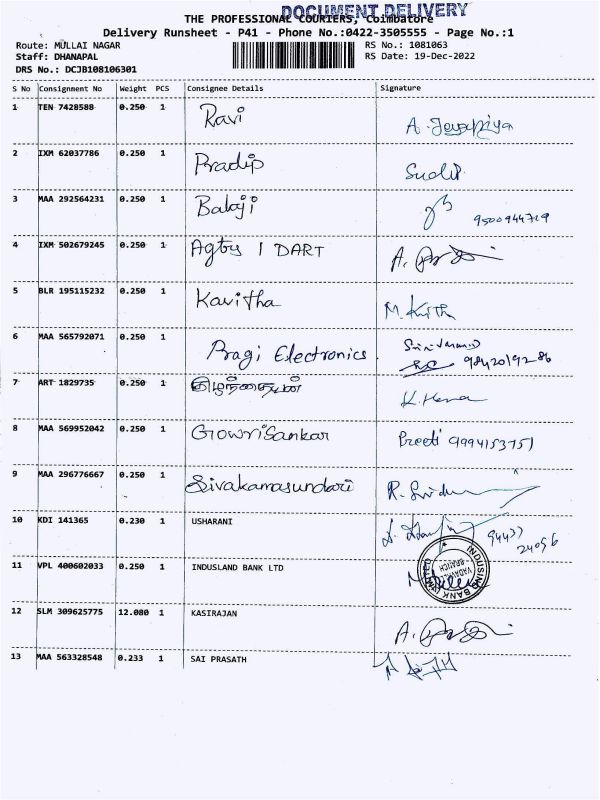 DOCUMENT DELIVERY
THE PROFESSIONAL COURIERS, Coimbatore
Delivery Runsheet - P41 - Phone No.:0422-3505555 - Page No.:1
Route: MULLAI NAGAR RS No.: 1081063
Staff: DHANAPAL RS Date: 19-Dec-2022
DRS No.: DCJB108106301
S No Consignment No Weight PCS Consignee Details Signature
1 TEN 7428588 0.250 1 Ravi
2 IXM 62037786 0.250 1 Pradip
3 MAA 292564231 0.250 1 Balaji 9500944729
4 IXM 502679245 0.250 1 DART
5 BLR 195115232 0.250 1 Kavitha
6 MAA 565792071 0.250 1 Pragi Electronics.
9842019286
7 ART 1829735 0.250 1 K. Hema
8 MAA 569952042 0.250 1 GowriSankar Preeti 9994153751
9 MAA 296776667 0.250 1 Sivakamasundari
10 KDI 141365 0.230 1 USHARANI 94433
24096
11 VPL 400602033 0.250 1 INDUSLAND BANK LTD
12 SLM 309625775 12.080 1 KASIRAJAN
13 MAA 563328548 0.233 1 SAI PRASATH